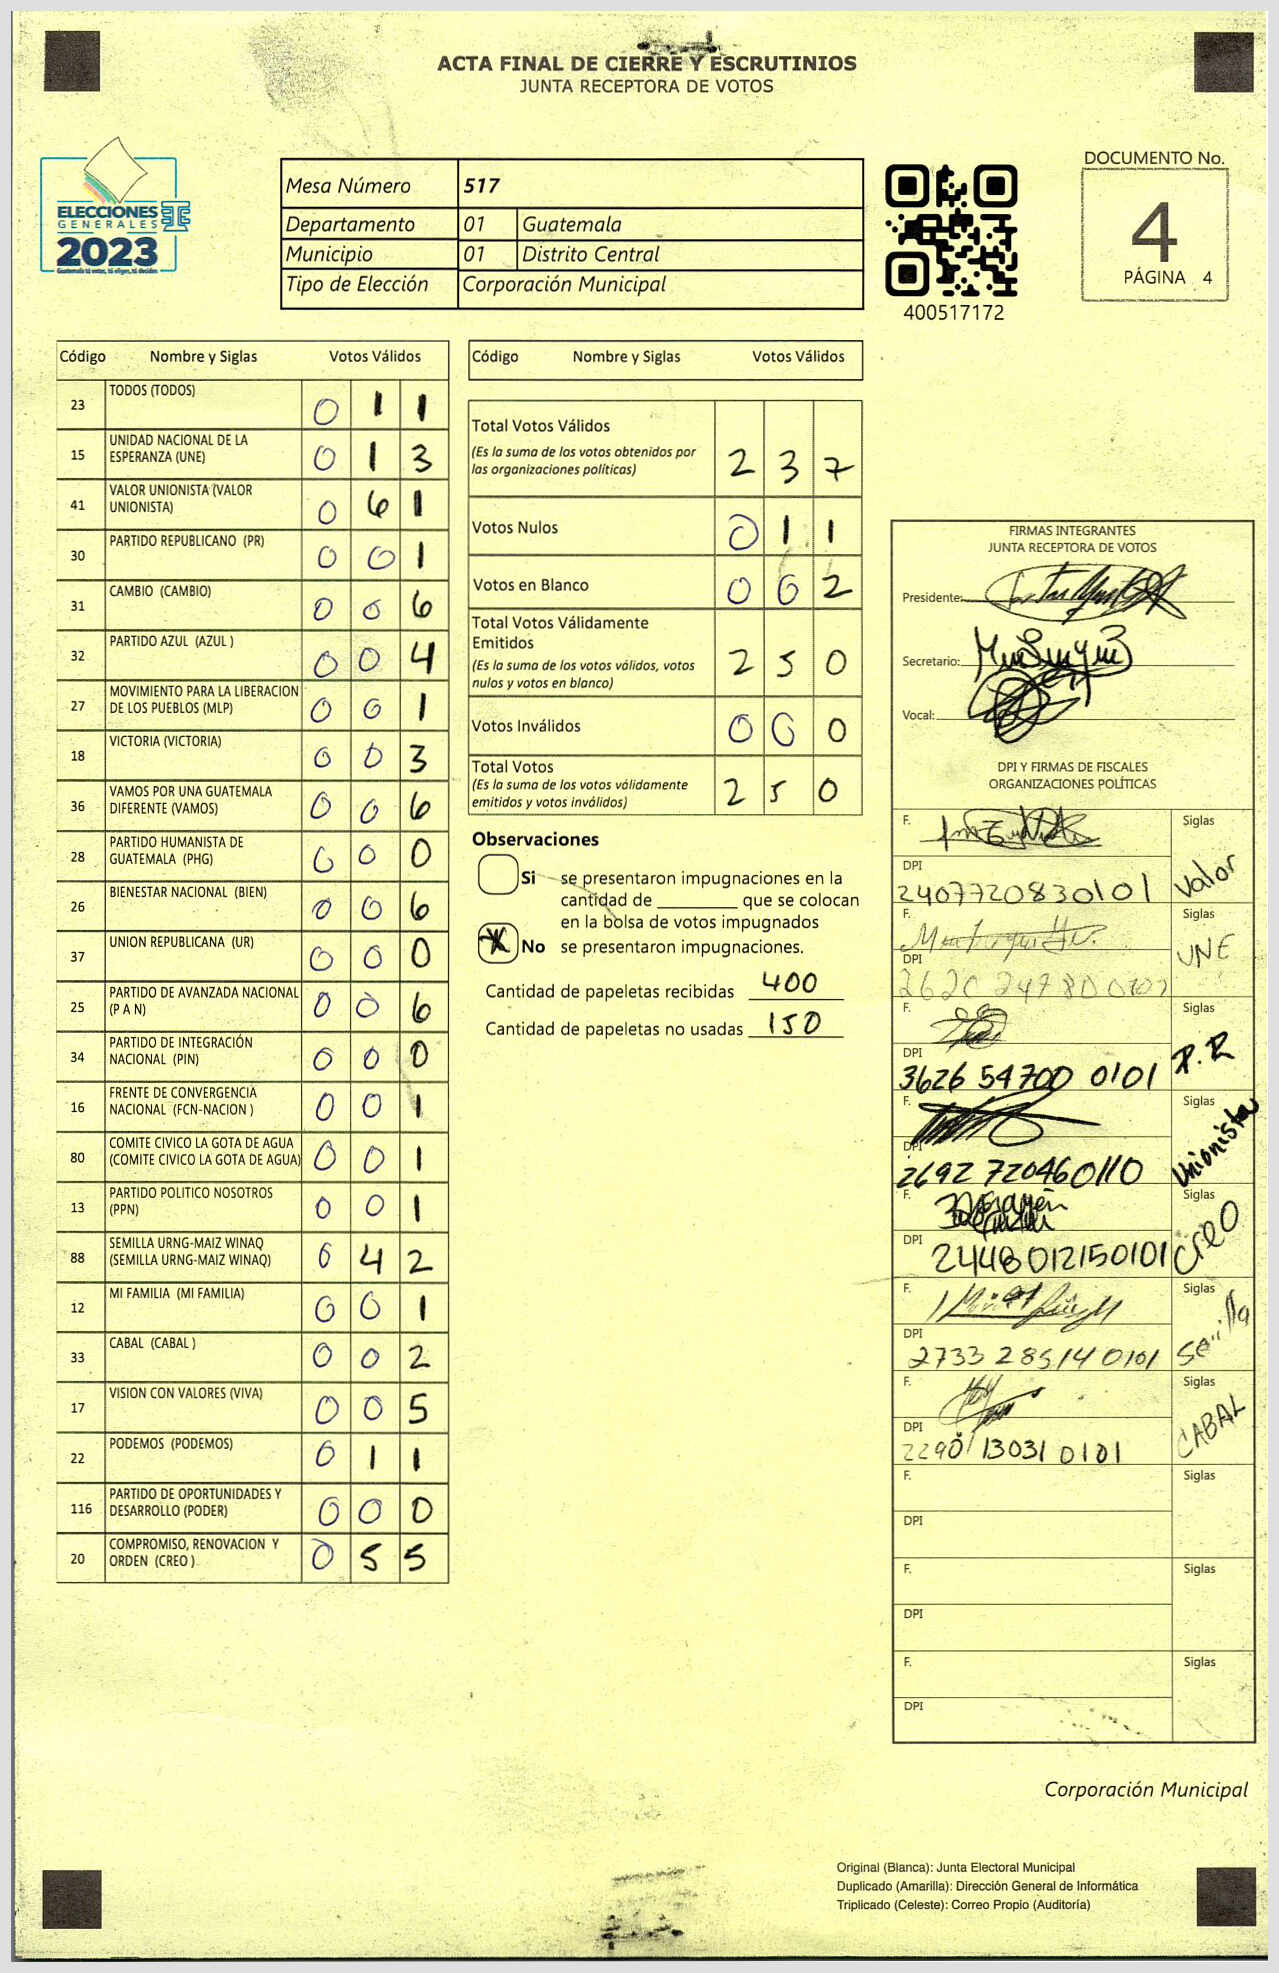 ACTA FINAL DE CIERRE Y ESCRUTINIOS
JUNTA RECEPTORA DE VOTOS
ELECCIONES
GENERALES
2023
Guatemala tú votas, tú eliges, tú decides
Mesa Número 517
Departamento 01 Guatemala
Municipio 01 Distrito Central
Tipo de Elección Corporación Municipal
400517172
DOCUMENTO No.
4
PÁGINA 4
Código Nombre y Siglas Votos Válidos
23 TODOS (TODOS) 0 1 1
15 UNIDAD NACIONAL DE LA ESPERANZA (UNE) 0 1 3
41 VALOR UNIONISTA (VALOR UNIONISTA) 0 6 1
30 PARTIDO REPUBLICANO (PR) 0 0 1
31 CAMBIO (CAMBIO) 0 0 6
32 PARTIDO AZUL (AZUL ) 0 0 4
27 MOVIMIENTO PARA LA LIBERACION DE LOS PUEBLOS (MLP) 0 0 1
18 VICTORIA (VICTORIA) 0 0 3
36 VAMOS POR UNA GUATEMALA DIFERENTE (VAMOS) 0 0 6
28 PARTIDO HUMANISTA DE GUATEMALA (PHG) 0 0 0
26 BIENESTAR NACIONAL (BIEN) 0 0 6
37 UNION REPUBLICANA (UR) 0 0 0
25 PARTIDO DE AVANZADA NACIONAL (P A N) 0 0 6
34 PARTIDO DE INTEGRACIÓN NACIONAL (PIN) 0 0 0
16 FRENTE DE CONVERGENCIA NACIONAL (FCN-NACION ) 0 0 1
80 COMITE CIVICO LA GOTA DE AGUA (COMITE CIVICO LA GOTA DE AGUA) 0 0 1
13 PARTIDO POLITICO NOSOTROS (PPN) 0 0 1
88 SEMILLA URNG-MAIZ WINAQ (SEMILLA URNG-MAIZ WINAQ) 0 4 2
12 MI FAMILIA (MI FAMILIA) 0 0 1
33 CABAL (CABAL ) 0 0 2
17 VISION CON VALORES (VIVA) 0 0 5
22 PODEMOS (PODEMOS) 0 1 1
116 PARTIDO DE OPORTUNIDADES Y DESARROLLO (PODER) 0 0 0
20 COMPROMISO, RENOVACION Y ORDEN (CREO ) 0 5 5
Código Nombre y Siglas Votos Válidos
Total Votos Válidos
(Es la suma de los votos obtenidos por
las organizaciones políticas) 2 3 7
Votos Nulos 0 1 1
Votos en Blanco 0 0 2
Total Votos Válidamente
Emitidos
(Es la suma de los votos válidos, votos
nulos y votos en blanco) 2 5 0
Votos Inválidos 0 0 0
Total Votos
(Es la suma de los votos válidamente
emitidos y votos inválidos) 2 5 0
Observaciones
Si se presentaron impugnaciones en la
cantidad de ________ que se colocan
en la bolsa de votos impugnados
X No se presentaron impugnaciones.
Cantidad de papeletas recibidas 400
Cantidad de papeletas no usadas 150
FIRMAS INTEGRANTES
JUNTA RECEPTORA DE VOTOS
Presidente:
Secretario:
Vocal:
DPI Y FIRMAS DE FISCALES
ORGANIZACIONES POLÍTICAS
F. Siglas
Valor
DPI
2407720830101
F. Siglas
UNE
DPI
F. Siglas
P.R
DPI
3626 54700 0101
F. Siglas
Unionista
DPI
2692 72046 0110
F. Siglas
CREO
DPI
2448 012150101
F. Siglas
Semilla
DPI
2733 28514 0101
F. Siglas
CABAL
DPI
2290 13031 0101
F. Siglas
DPI
F. Siglas
DPI
F. Siglas
DPI
Corporación Municipal
Original (Blanca): Junta Electoral Municipal
Duplicado (Amarilla): Dirección General de Informática
Triplicado (Celeste): Correo Propio (Auditoría)